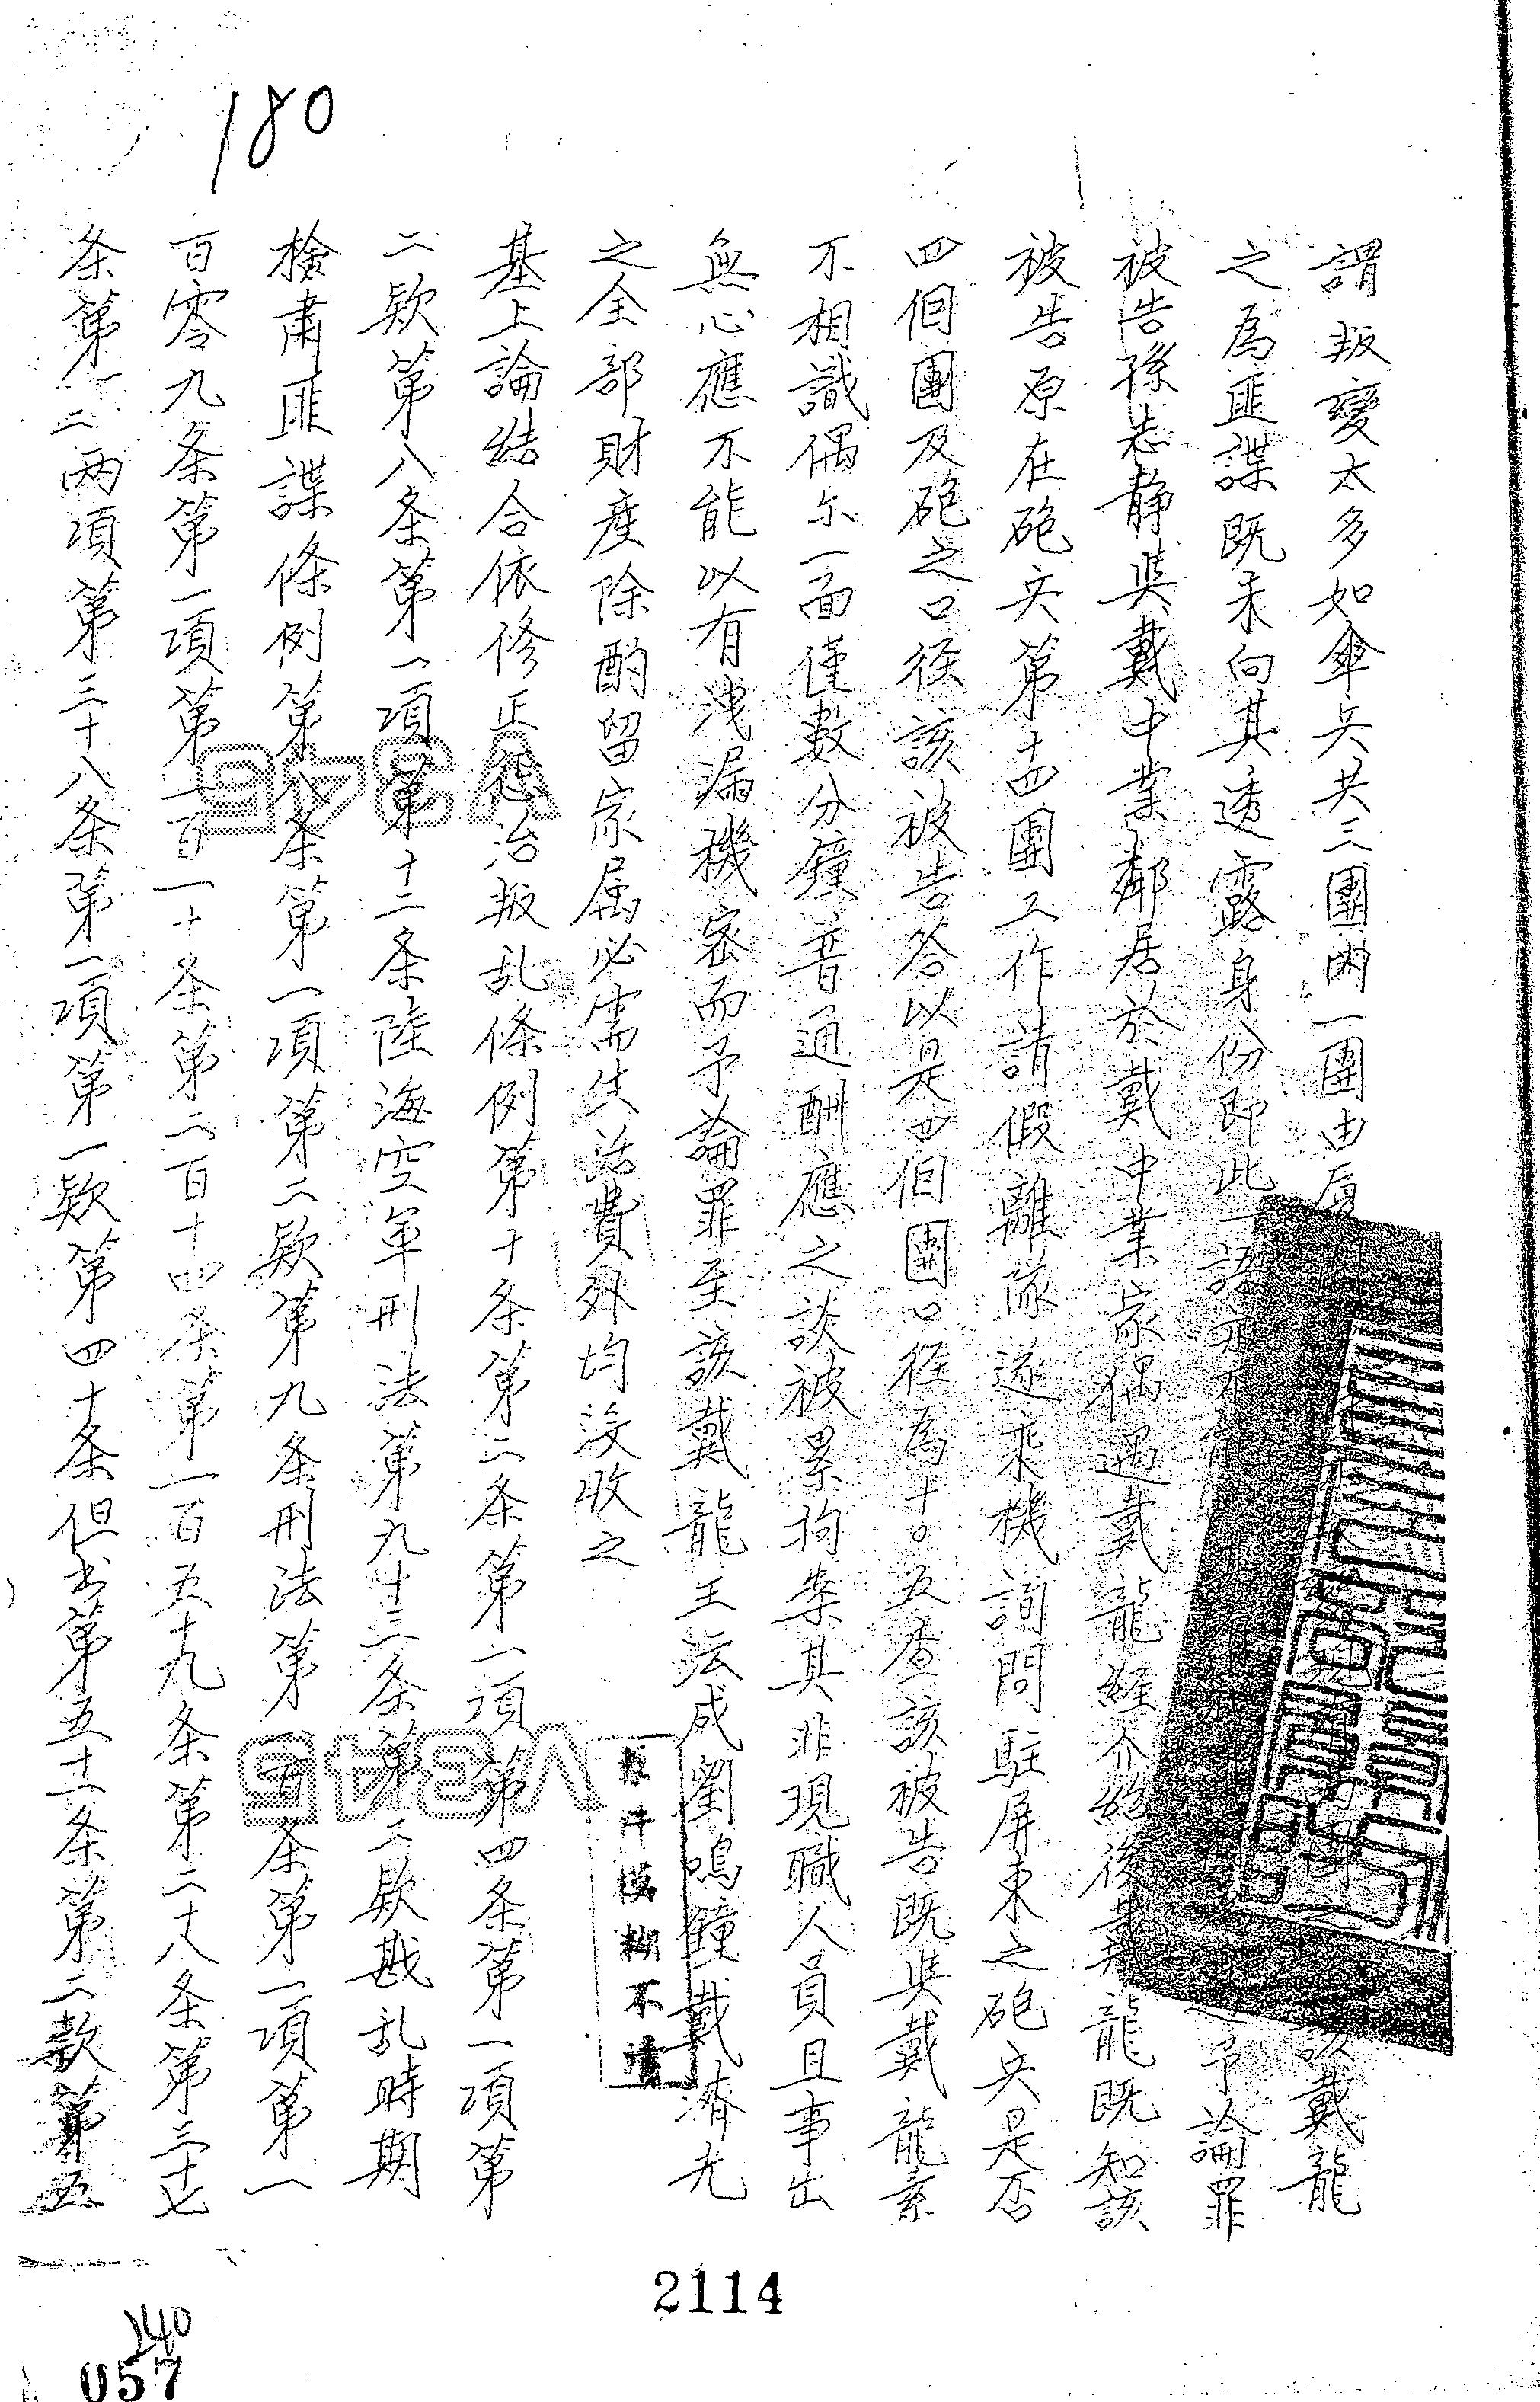 180
謂叛變太多如傘兵共三團內一團由
該戴龍
之為匪諜既未向其透露身份即此一語亦不
予論罪
被告孫志静與戴中業鄰居於戴中業家偶遇戴龍經介紹後戴龍既知該
被告原在砲兵第十四團工作請假離隊遂乘機詢問駐屏東之砲兵是否
四個團及砲之口徑該被告答以是四個團口徑為十。五查該被告既與戴龍素
不相識偶尔一面僅數分鐘普通酬應之談被累拘案其非現職人員且事出
無心應不能以有洩漏機密而予論罪至該戴龍王坛成劉鳴鐘戴濟光
之全部財產除酌留家属必需生活費外均沒收之
基上論結合依修正懲治叛乱條例第十条第二条第一項第四条第一項第
二款第八条第一項第十二条陸海空軍刑法第九十三条第二款戡乱時期
檢肅匪諜條例第八条第一項第二款第九条刑法第一百条第一項第一
百零九条第一項第一百一十条第二百十四条第一百五十九条第二十八条第三十七
条第一二两項第三十八条第一項第一款第四十条但书第五十一条第二款第五
原件模糊不清
V3445
V3445
2114
240
057